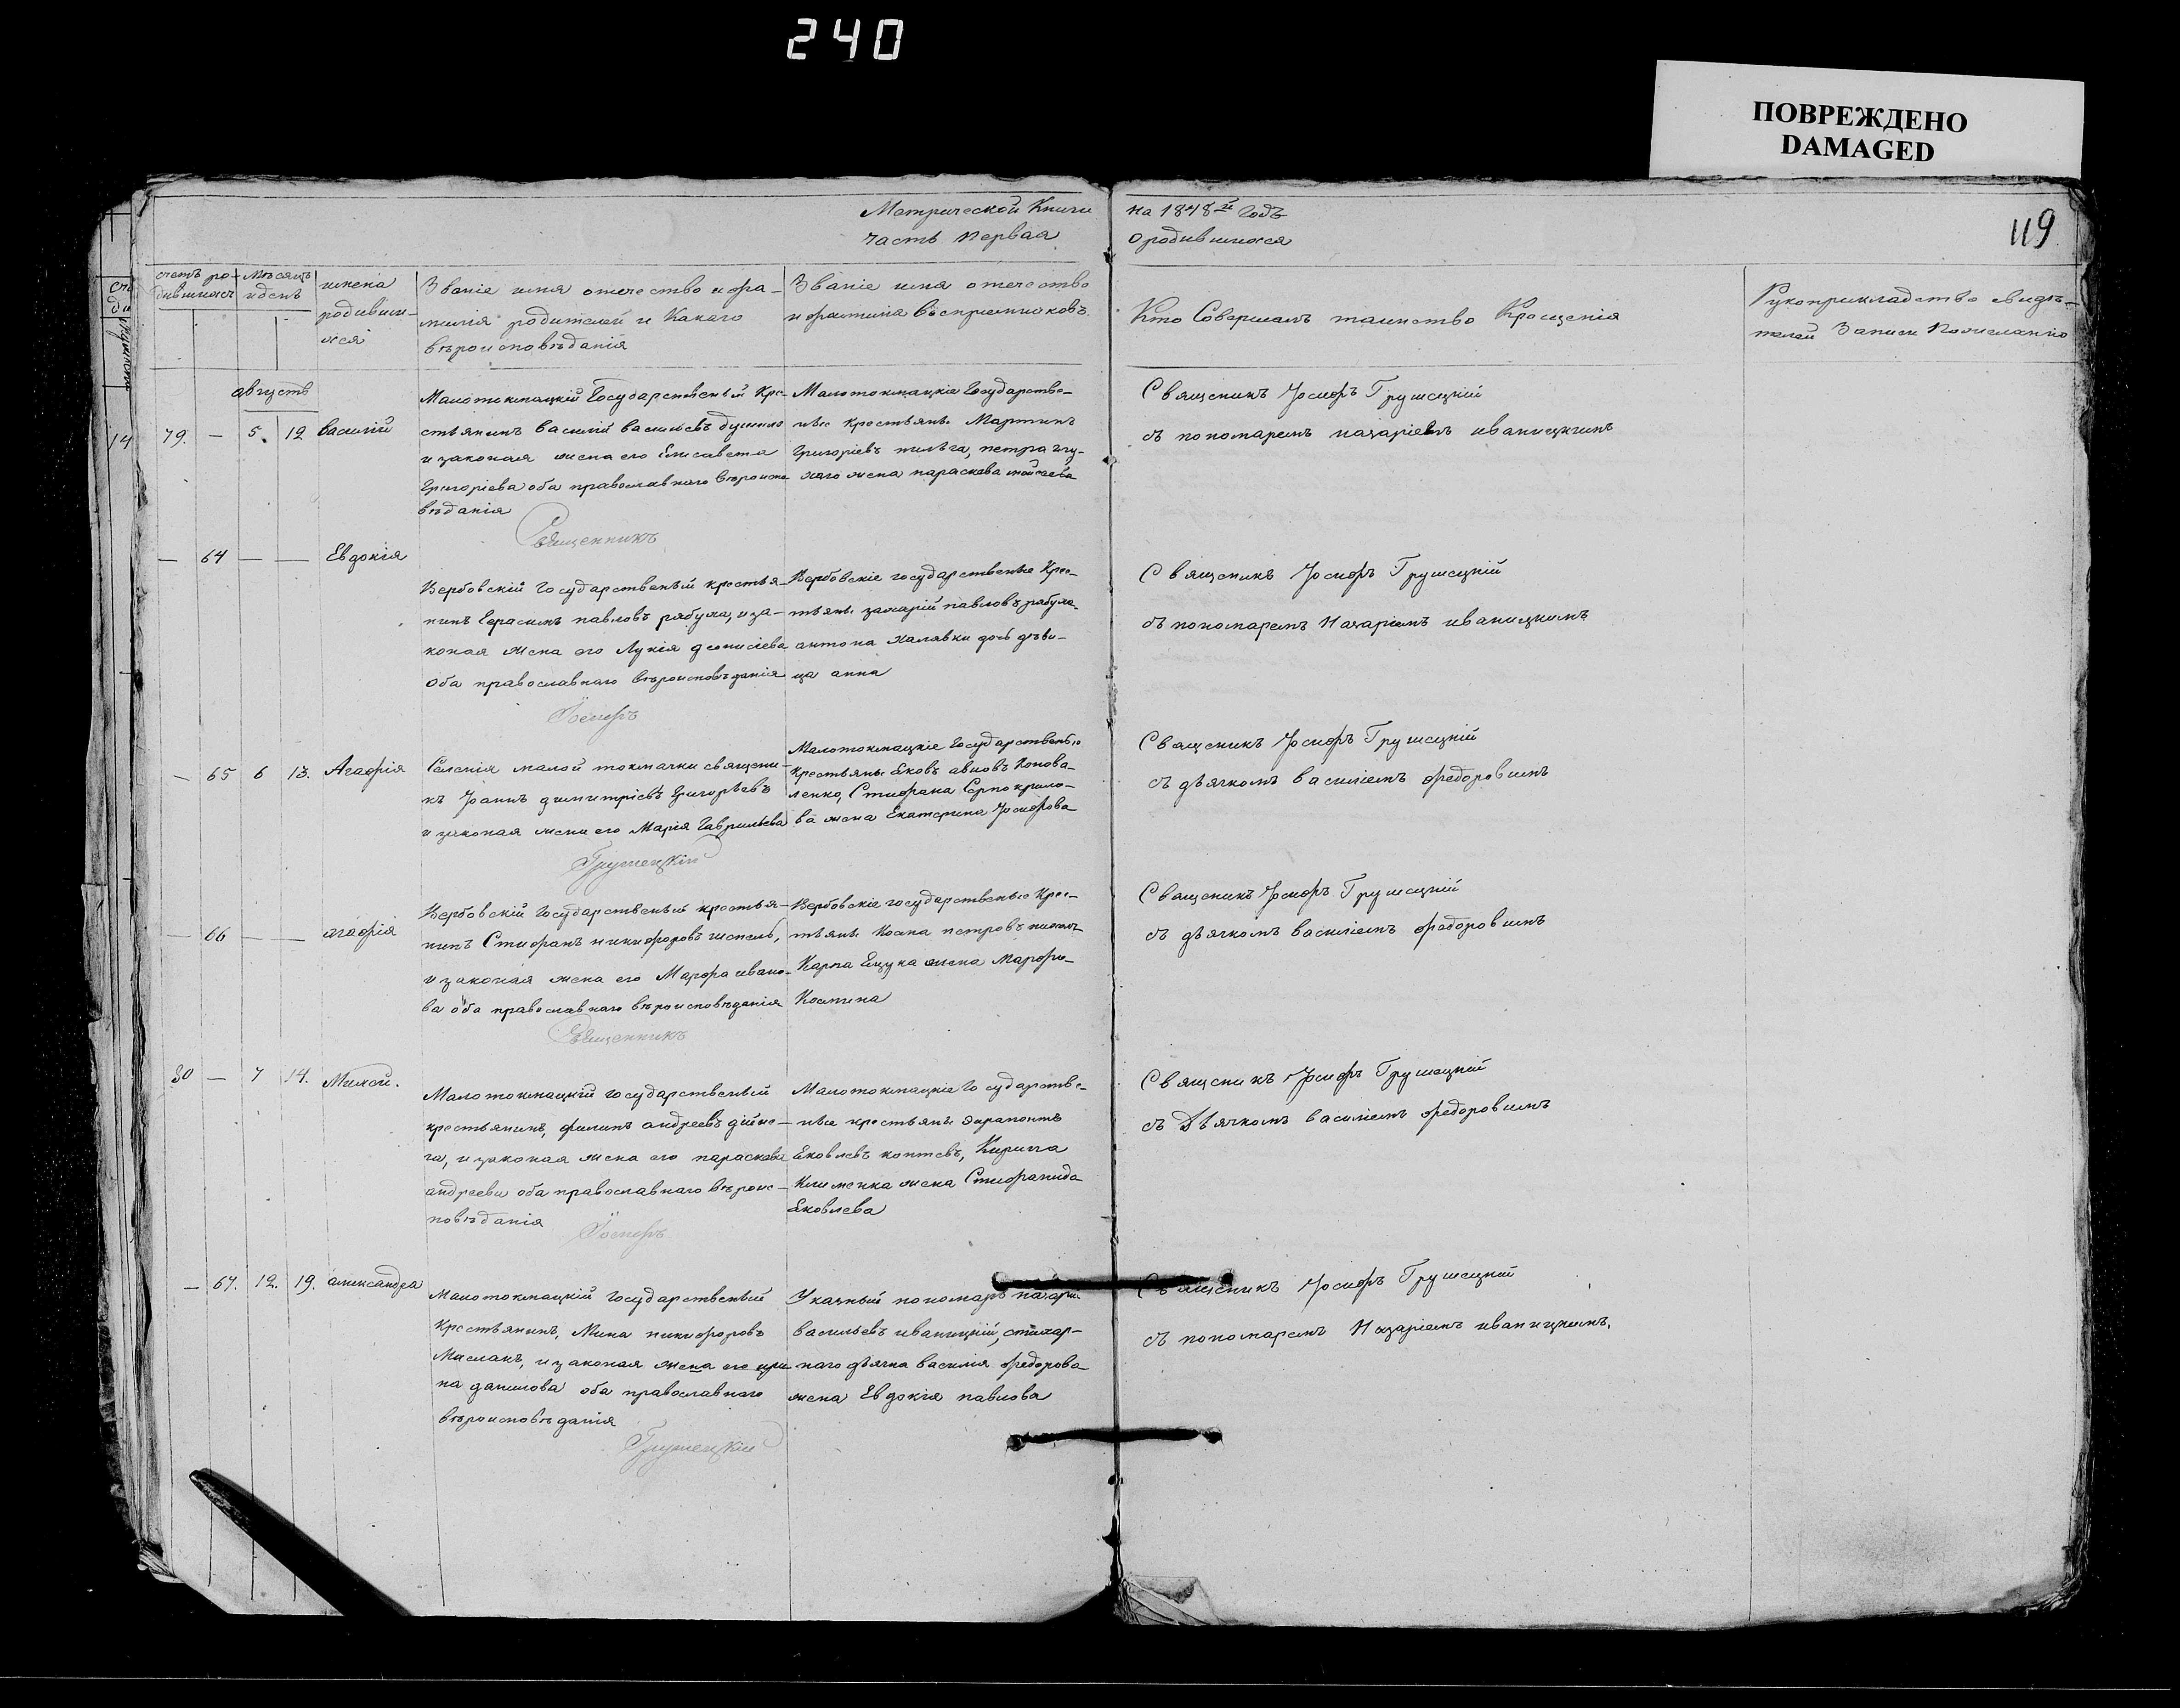 240
ПОВРЕЖДЕНО
DAMAGED
Метрической Книги на 1848й Годъ
часть первая о родившихся
119
счетъ ро-
дившихся
Мѣсяцъ
и день
имена
родивши-
хся
Званіе имя отечество и фа-
милія родителей и Какаго
вѣроисповѣданія
Званіе имя отечество
и фамилія восприемниковъ
Кто Совершалъ таинство Крещенія
Рукоприкладство свидѣ-
телей Записи По желанію
августъ
14
79. — 5. 12 василій
Малотокмацкій Государственый Кре-
стьянинъ василій васильевъ
и законая жена его Елисавета
Григоріева оба православнаго вѣроиспо-
вѣданія
Малотокмацкіе Государстве-
ные крестьяне Мартинъ
Григоріевъ петра
жена параскева
Священикъ Іосифъ Грушецкій
съ пономаремъ назаріемъ иваницкимъ
Священникъ
— 64 — — Евдокія
Вербовскій Государственый крестья-
нинъ Герасимъ павловъ рябуха, и за-
коная жена его Лукія денисіева
Оба православнаго вѣроисповѣданія
Вербовскіе государственые Крес-
тьяне захарій павловъ рябуха
антона халявки дочь дѣви-
ца анна
Священикъ Іосифъ Грушецкій
съ пономаремъ Назаріемъ иваницкимъ
Іосифъ
— 65 6 13. Агафія
Селенія малой токмачки священи-
къ Іоаннъ димитріевъ Григорьевъ
и законая жена его Марія Гаврильева
Малотокмацкіе Государственые
крестьяне Яковъ Конова-
ленко, Стефана Серпокрыло-
ва жена Екатерина Іосифова
Священикъ Іосифъ Грушецкій
съ дьячкомъ василіемъ федоровимъ
Грушецкій
— 66 — — агафія
Вербовскій Государственый крестья-
нинъ Стефанъ никифоровъ
и законая жена его Марфа ивано-
ва оба православнаго вѣроисповѣданія
Вербовскіе государственые Крес-
тьяне Косма петровъ
Карпа Ецука жена Марфа
Космина
Священикъ Іосифъ Грушецкій
съ дьячкомъ василіемъ федоровимъ
Священникъ
80 — 7 14. Михей.
Малотокмацкій государственый
крестьянинъ, филипъ андреевъ дійне-
га, и законая жена его параскева
андреева оба православнаго вѣроис-
повѣданія
Малотокмацкіе Государстве-
ные крестьяне
Яковлевъ коптевъ, Кирила
Клименка жена Стефанида
Яковлева
Священикъ Іосифъ Грушецкій
съ Дьячкомъ василіемъ федоровимъ
Іосифъ
— 67. 12. 19. александра
Малотокмацкій государственый
Крестьянинъ, Мина никифоровъ
Масланъ, и законая жена его ири-
на данилова оба православнаго
вѣроисповѣданія
Указный пономарь назарій
васильевъ иваницкій, стихар-
наго дьячка василія федорова
жена Евдокія павлова
Священикъ Іосифъ Грушецкій
съ пономаремъ Назаріемъ иваницкимъ.
Грушецкій